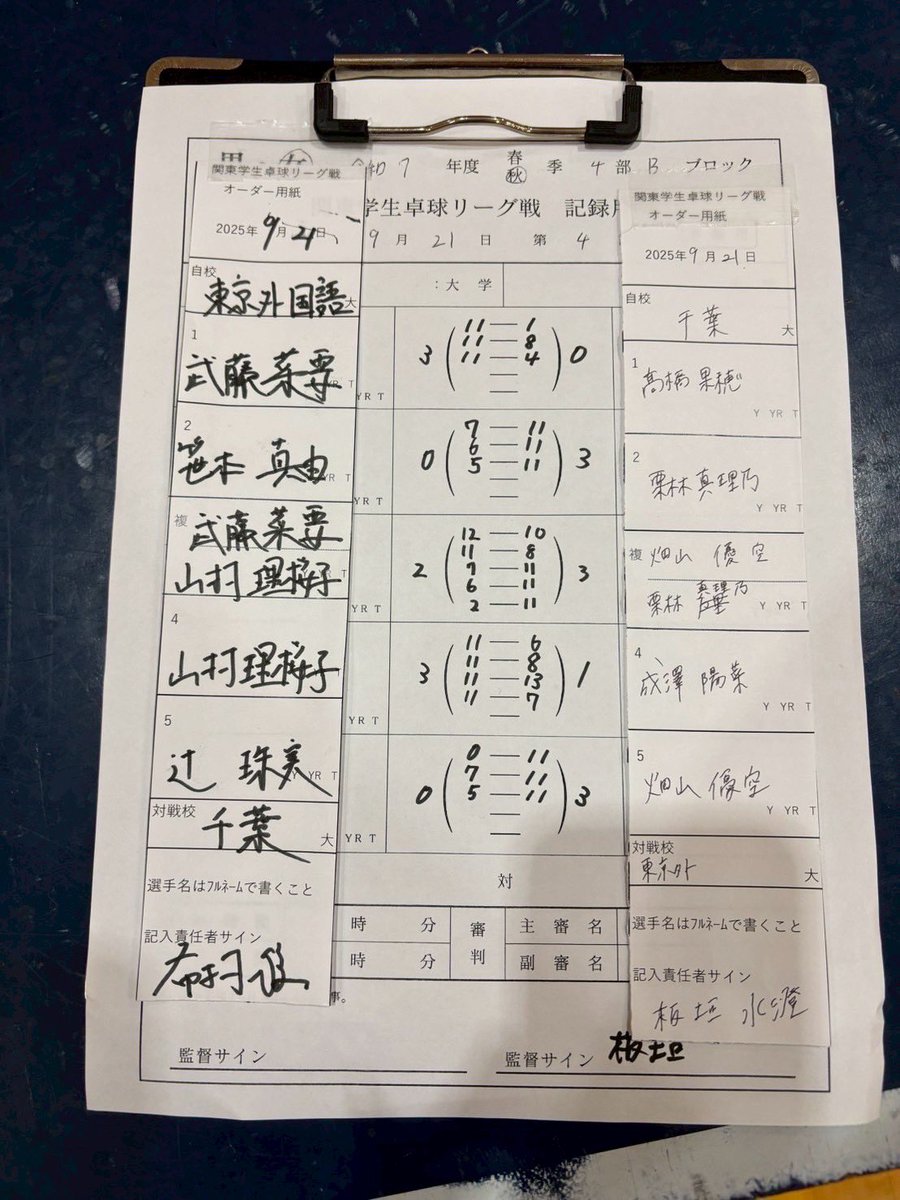 女 令和7 年度 春 秋 季 4 部 B ブロック
学生卓球リーグ戦 記録用
9 月 21 日 第 4
: 大 学
関東学生卓球リーグ戦
オーダー用紙
2025年 9月 21日
自校
東京外国語大
1
武藤菜要
YR T
2
笹本 真由
YR T
複 武藤菜要
山村理桜子
YR T
4
山村理桜子
YR T
5
辻 珠美
YR T
対戦校
千葉 大
選手名はﾌﾙﾈｰﾑで書くこと
記入責任者サイン
3 ( 11 — 1 ) 0
11 — 8
11 — 4
0 ( 7 — 11 ) 3
6 — 11
5 — 11
2 ( 12 — 10 ) 3
11 — 8
7 — 11
6 — 11
2 — 11
3 ( 11 — 6 ) 1
11 — 8
11 — 13
11 — 7
0 ( 0 — 11 ) 3
7 — 11
5 — 11
対
時 分 審判 主 審 名
時 分 副 審 名
事。
関東学生卓球リーグ戦
オーダー用紙
2025年 9月 21日
自校
千葉 大
1
高橋 果穂
Y YR T
2
栗林 真理乃
Y YR T
複 畑山 優空
栗林 真理乃
Y YR T
4
成澤 陽菜
Y YR T
5
畑山 優空
Y YR T
対戦校
東京外 大
選手名はﾌﾙﾈｰﾑで書くこと
記入責任者サイン
板垣 水澄
監督サイン
監督サイン 板垣